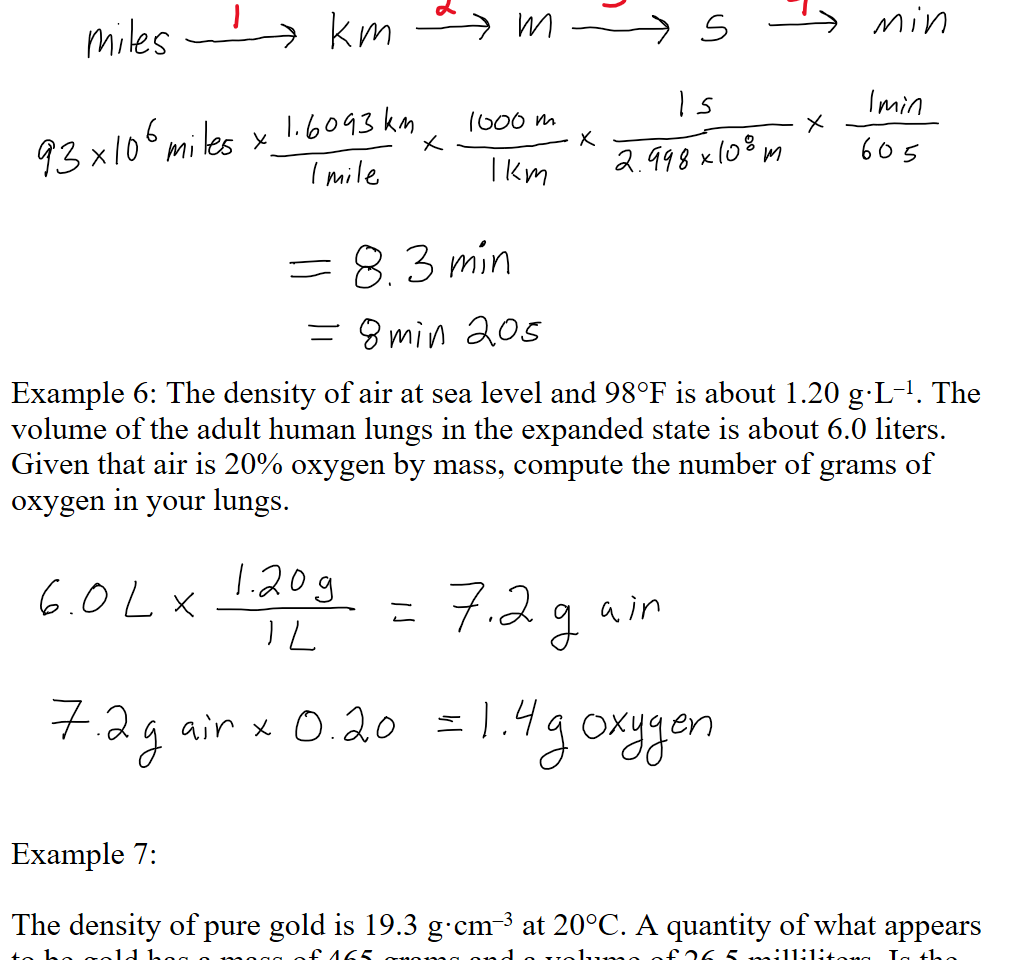 1 2 3 4
miles → km → m → s → min
93 x 10⁶ miles x 1.6093 km / 1 mile x 1000 m / 1 km x 1 s / 2.998 x 10⁸ m x 1 min / 60 s
= 8.3 min
= 8 min 20 s
Example 6: The density of air at sea level and 98°F is about 1.20 g·L⁻¹. The
volume of the adult human lungs in the expanded state is about 6.0 liters.
Given that air is 20% oxygen by mass, compute the number of grams of
oxygen in your lungs.
6.0 L x 1.20 g / 1 L = 7.2 g air
7.2 g air x 0.20 = 1.4 g oxygen
Example 7:
The density of pure gold is 19.3 g·cm⁻³ at 20°C. A quantity of what appears
to be gold has a mass of 465 grams and a volume of 26.5 milliliters. Is the